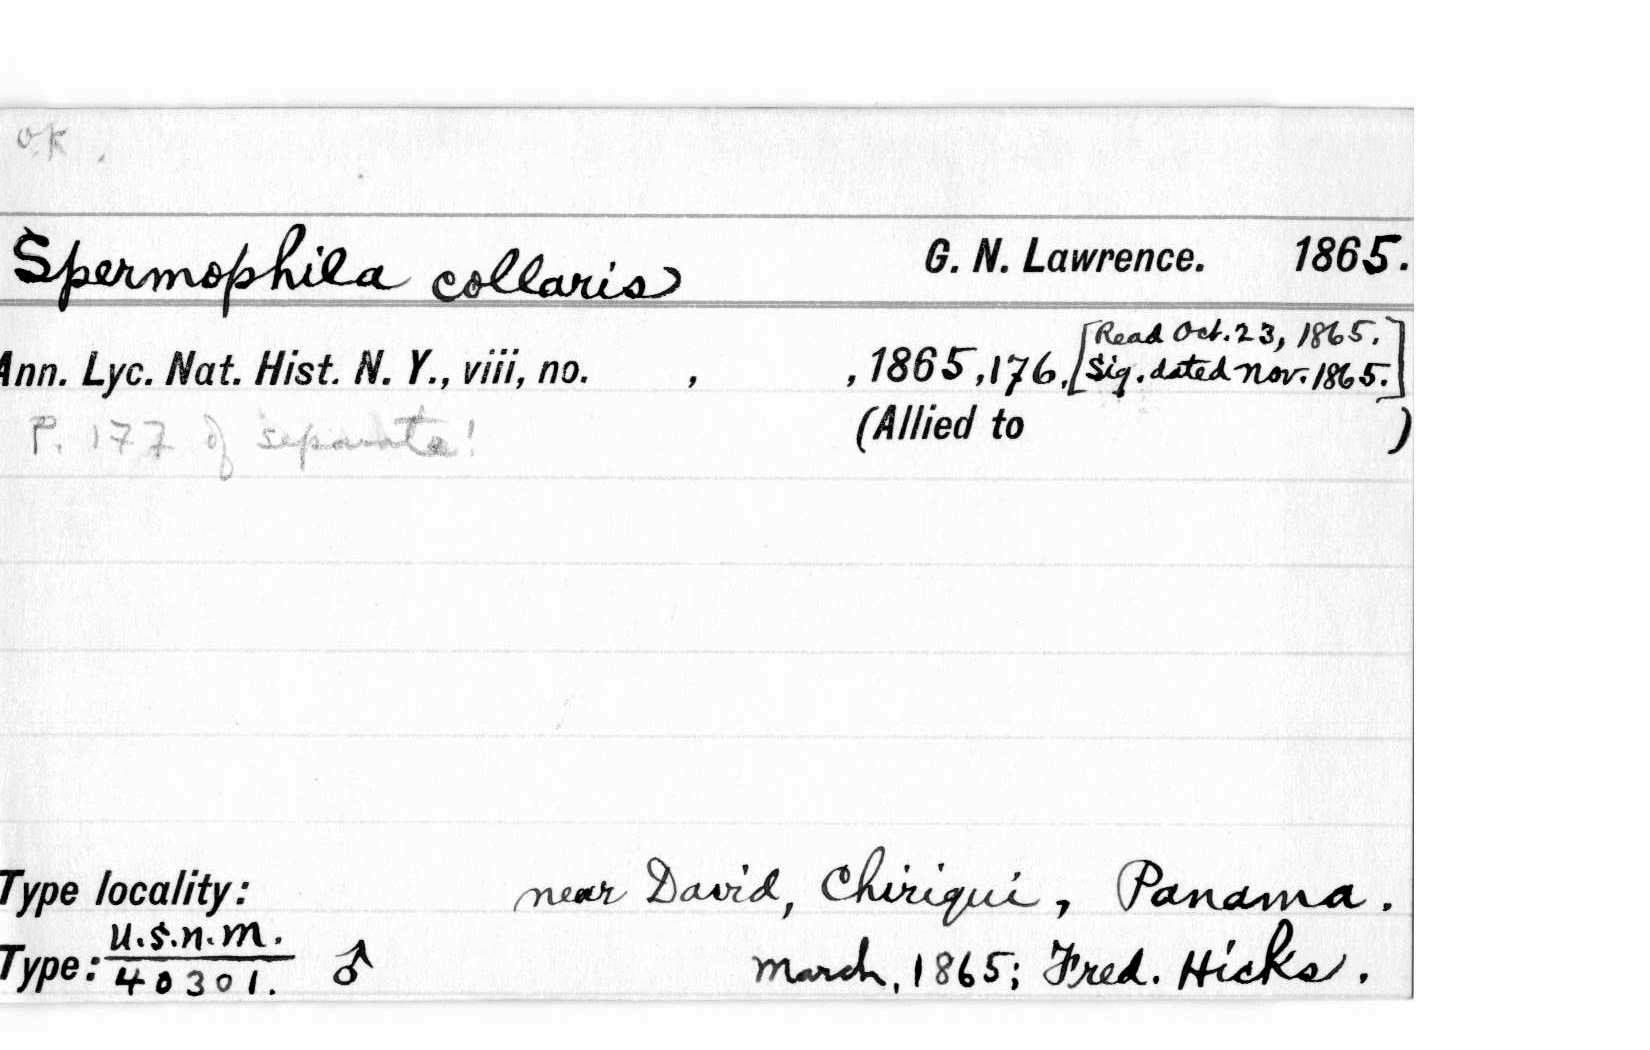 ok.
Spermophila collaris G. N. Lawrence. 1865.
[Read Oct. 23, 1865.
Ann. Lyc. Nat. Hist. N. Y., viii, no. , , 1865, 176, Sig. dated Nov. 1865.]
P. 177 of separate! (Allied to )
Type locality: near David, Chiriqui, Panama.
U.S.N.M.
Type: 40301. ♂ March, 1865; Fred. Hicks.